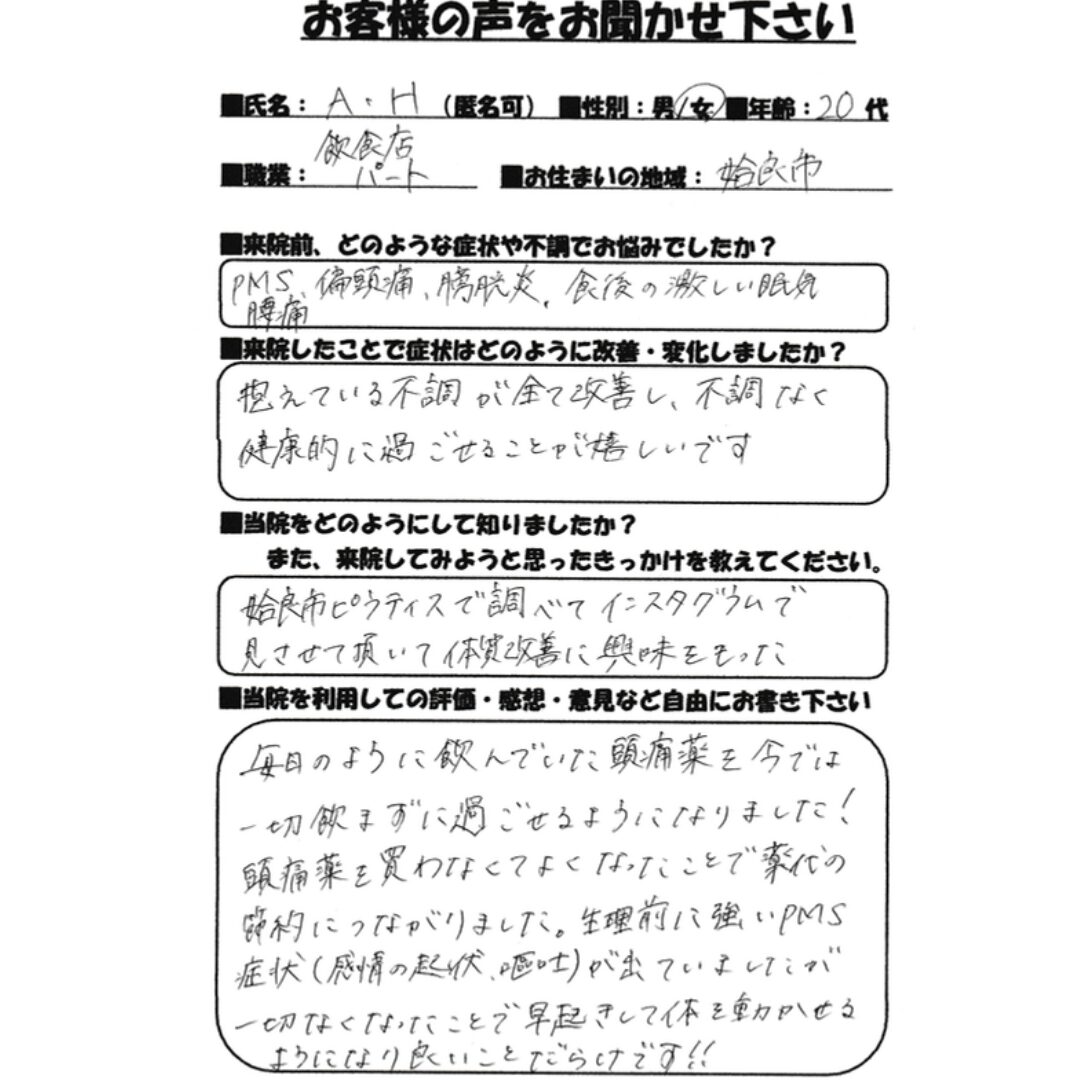 お客様の声をお聞かせ下さい
■氏名：A・H（匿名可） ■性別：男/女 ■年齢：20代
飲食店
■職業：パート ■お住まいの地域：姶良市
■来院前、どのような症状や不調でお悩みでしたか？
PMS、偏頭痛、膀胱炎、食後の激しい眠気
腰痛
■来院したことで症状はどのように改善・変化しましたか？
抱えている不調が全て改善し、不調なく
健康的に過ごせることが嬉しいです
■当院をどのようにして知りましたか？
また、来院してみようと思ったきっかけを教えてください。
姶良市ピラティスで調べてインスタグラムで
見させて頂いて体質改善に興味をもった
■当院を利用しての評価・感想・意見など自由にお書き下さい
毎日のように飲んでいた頭痛薬を今では
一切飲まずに過ごせるようになりました！
頭痛薬を買わなくてよくなったことで薬代の
節約につながりました。生理前に強いPMS
症状（感情の起伏、嘔吐）が出ていましたが
一切なくなったことで早起きして体を動かせる
ようになり良いことだらけです!!